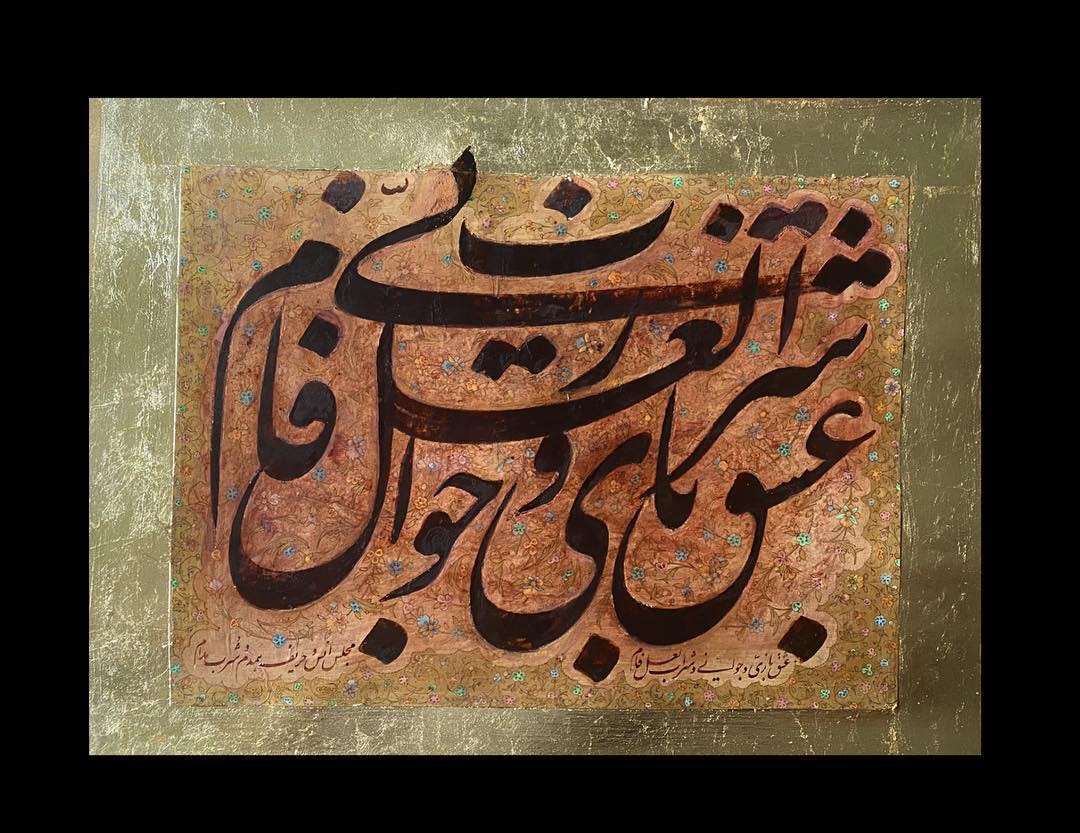 عشق بازی و جوانی و شراب لعل فام
عشق بازی و جوانی و شراب لعل فام
مجلس انس و حریف همدم و شرب مدام